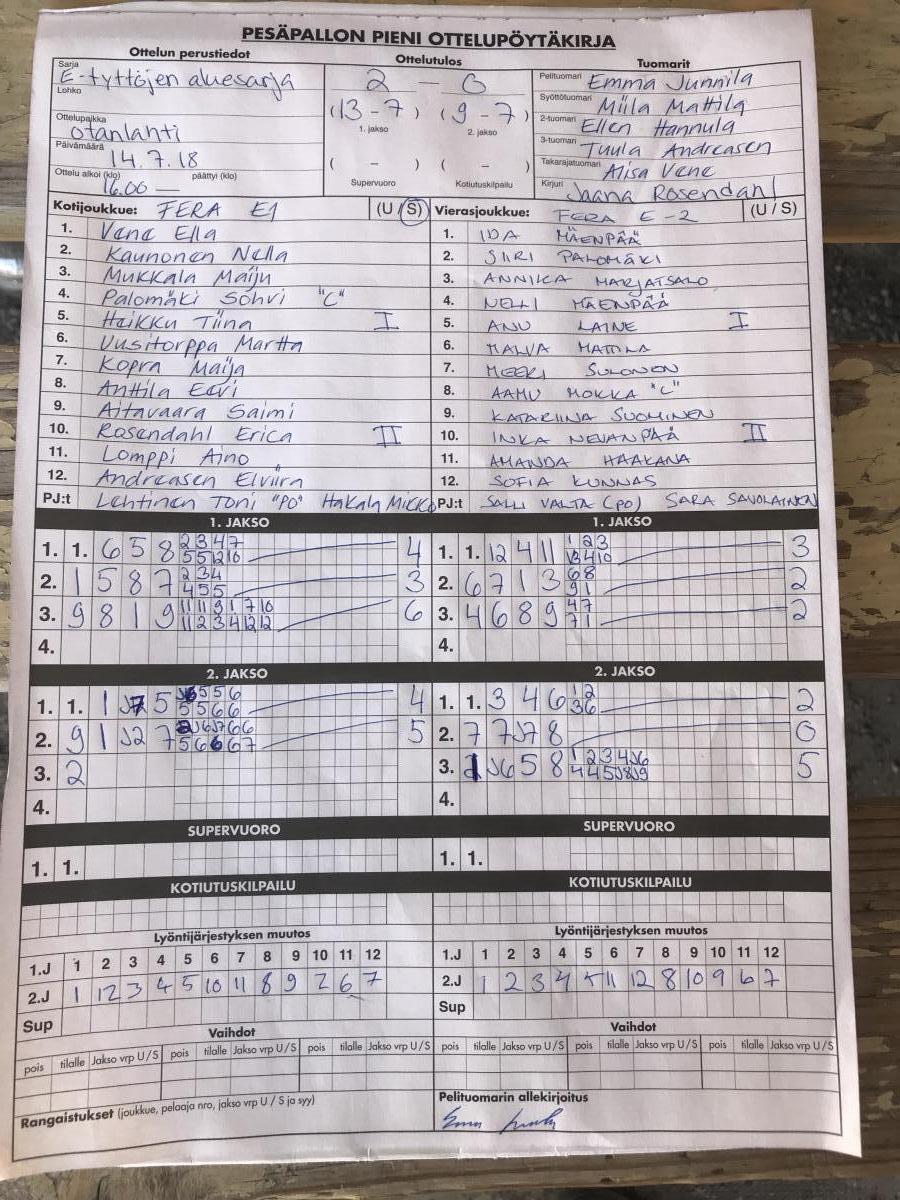 PESÄPALLON PIENI OTTELUPÖYTÄKIRJA
Ottelun perustiedot Ottelutulos Tuomarit
Sarja E-tyttöjen aluesarja
Lohko
Ottelupaikka Otanlahti
Päivämäärä 14.7.18
Ottelu alkoi (klo) 16.00 — päättyi (klo)
2 — 0
(13 - 7) (9 - 7)
1. jakso 2. jakso
( - ) ( - )
Supervuoro Kotiutuskilpailu
Pelituomari Emma Junnila
Syöttötuomari Miila Mattila
2-tuomari Ellen Hannula
3-tuomari Tuula Andreasen
Takarajatuomari Alisa Vene
Kirjuri Jaana Rosendahl
Kotijoukkue: FERA E1 (U / S)
1. Vene Ella
2. Kaunonen Nella
3. Mukkala Maiju
4. Palomäki Sohvi "C"
5. Heikku Tiina I
6. Uusitorppa Martta
7. Kopra Maija
8. Anttila Eevi
9. Aitavaara Saimi
10. Rosendahl Erica II
11. Lomppi Aino
12. Andreasen Elviira
PJ:t Lehtinen Toni "PO" Hakala Micko
Vierasjoukkue: FERA E-2 (U / S)
1. IDA MÄENPÄÄ
2. SIIRI PALOMÄKI
3. ANNIKA MARJATSALO
4. NELLI MÄENPÄÄ
5. ANU LAINE I
6. MALVA MATTILA
7. MEERI SULONEN
8. AAMU MOKKA "C"
9. KATARIINA SUOMINEN
10. INKA NEVANPÄÄ II
11. AMANDA HAAKANA
12. SOFIA KUNNAS
PJ:t SALLI VALTA (PO) SARA SAVOLAINEN
1. JAKSO
1. 1. 6 5 8 2 3 4 7 4
5 5 12 10
2. 1 5 8 7 2 3 4 3
4 5 5
3. 9 8 1 9 11 11 9 1 7 10 6
11 2 3 4 12 12
4.
1. JAKSO
1. 1. 12 4 11 1 2 3 3
12 4 10
2. 6 7 1 3 6 8 2
9 1
3. 4 6 8 9 4 7 2
7 1
4.
2. JAKSO
1. 1. 1 J7 5 5 5 6 4
5 5 6 6
2. 9 1 J2 7 J6 J7 6 6 5
5 6 6 6 7
3. 2
4.
2. JAKSO
1. 1. 3 4 6 1 2 2
3 6
2. 7 7 J7 8 0
3. J6 5 8 1 2 3 4 J6 5
4 4 5 J8 J9
4.
SUPERVUORO
1. 1.
SUPERVUORO
1. 1.
KOTIUTUSKILPAILU
KOTIUTUSKILPAILU
Lyöntijärjestyksen muutos
1.J 1 2 3 4 5 6 7 8 9 10 11 12
2.J 1 12 3 4 5 10 11 8 9 2 6 7
Sup
Lyöntijärjestyksen muutos
1.J 1 2 3 4 5 6 7 8 9 10 11 12
2.J 1 2 3 4 5 11 12 8 10 9 6 7
Sup
Vaihdot
pois tilalle Jakso vrp U / S pois tilalle Jakso vrp U / S pois tilalle Jakso vrp U / S
Vaihdot
pois tilalle Jakso vrp U / S pois tilalle Jakso vrp U / S pois tilalle Jakso vrp U / S
Rangaistukset (joukkue, pelaaja nro, jakso vrp U / S ja syy)
Pelituomarin allekirjoitus